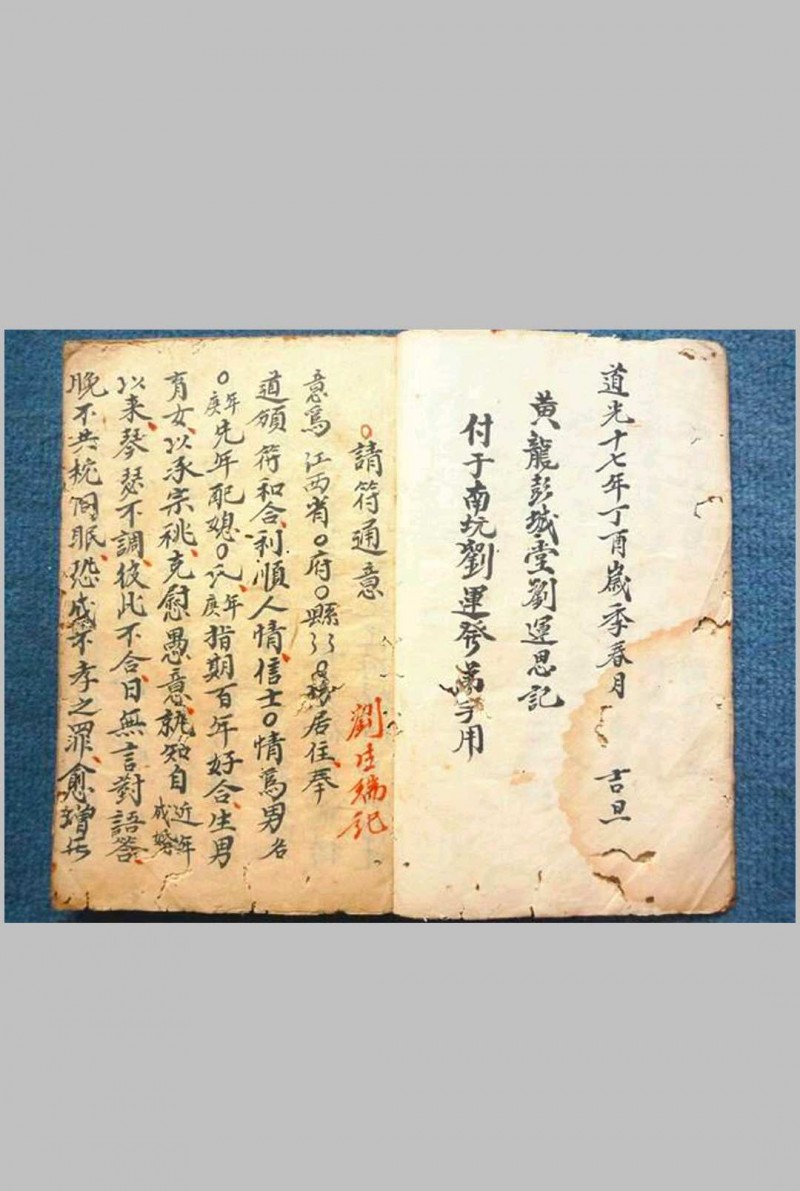 道光十七年丁酉歲季春月 吉旦
黄龍彭城堂劉運思記
付于南坑劉運發弟子用
○請符通意
劉 記
意爲江西省○府○縣 居住奉
道頒符和合利順人情信士○情爲男名
○年庚先年配媳○氏年庚指期百年好合生男
育女以承宗祧克慰愚意孰知自近年成婚
以来琴瑟不調彼此不合日無言對語答
晚不共枕同眠恐成不孝之罪愈增